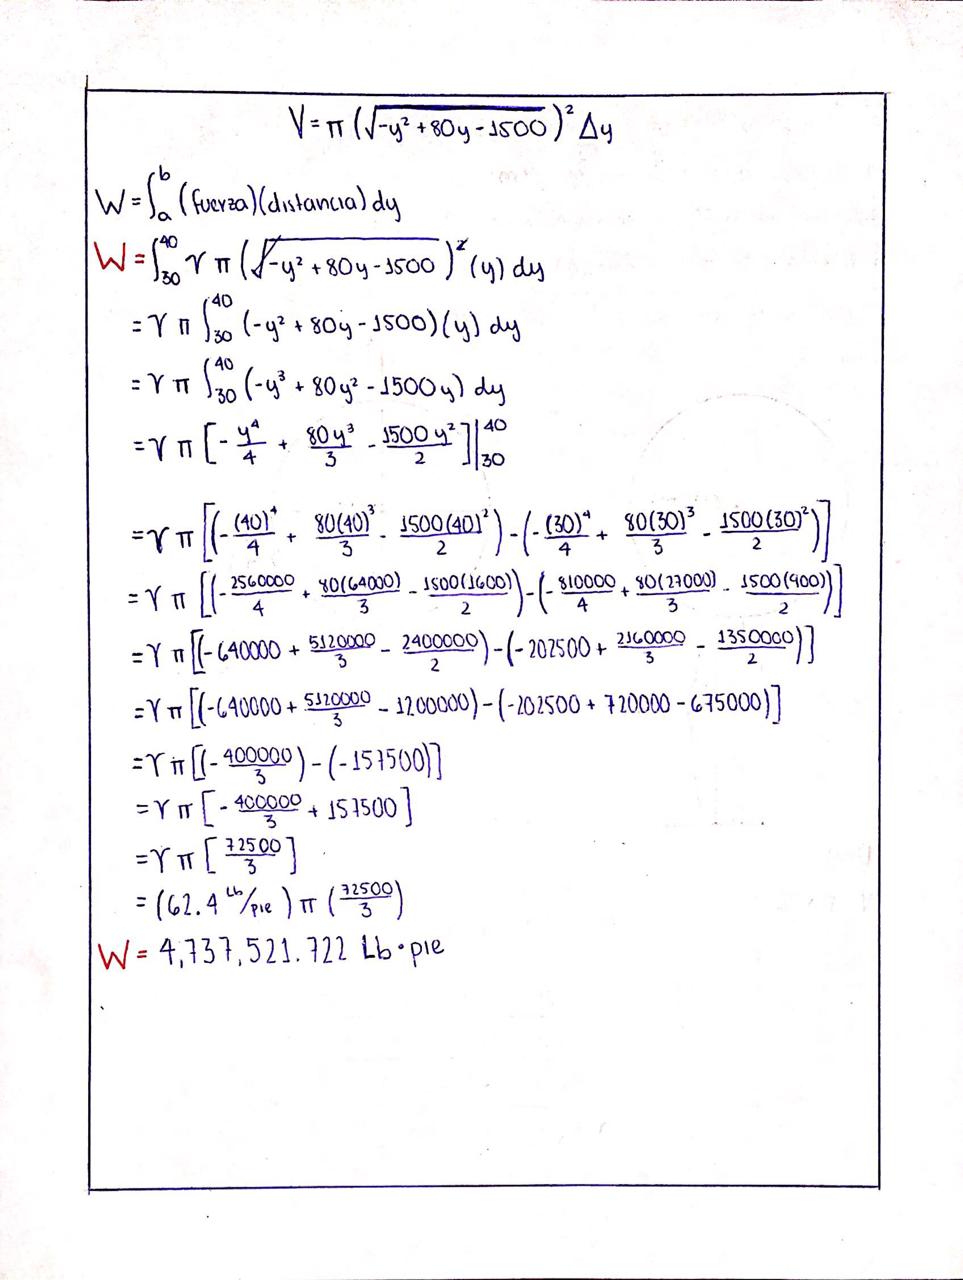 V = π (√-y² + 80y - 1500)² Δy
W = ∫ₐᵇ (fuerza)(distancia) dy
W = ∫₃₀⁴⁰ γ π (√-y² + 80y - 1500)² (y) dy
= γ π ∫₃₀⁴⁰ (-y² + 80y - 1500)(y) dy
= γ π ∫₃₀⁴⁰ (-y³ + 80y² - 1500y) dy
= γ π [- y⁴/4 + 80y³/3 - 1500y²/2]|₃₀⁴⁰
= γ π [(- (40)⁴/4 + 80(40)³/3 - 1500(40)²/2) - (- (30)⁴/4 + 80(30)³/3 - 1500(30)²/2)]
= γ π [(- 2560000/4 + 80(64000)/3 - 1500(1600)/2) - (- 810000/4 + 80(27000)/3 - 1500(900)/2)]
= γ π [(-640000 + 5120000/3 - 2400000/2) - (-202500 + 2160000/3 - 1350000/2)]
= γ π [(-640000 + 5120000/3 - 1200000) - (-202500 + 720000 - 675000)]
= γ π [(- 400000/3) - (-157500)]
= γ π [- 400000/3 + 157500]
= γ π [72500/3]
= (62.4 Lb/pie) π (72500/3)
W = 4,737,521.722 Lb·pie